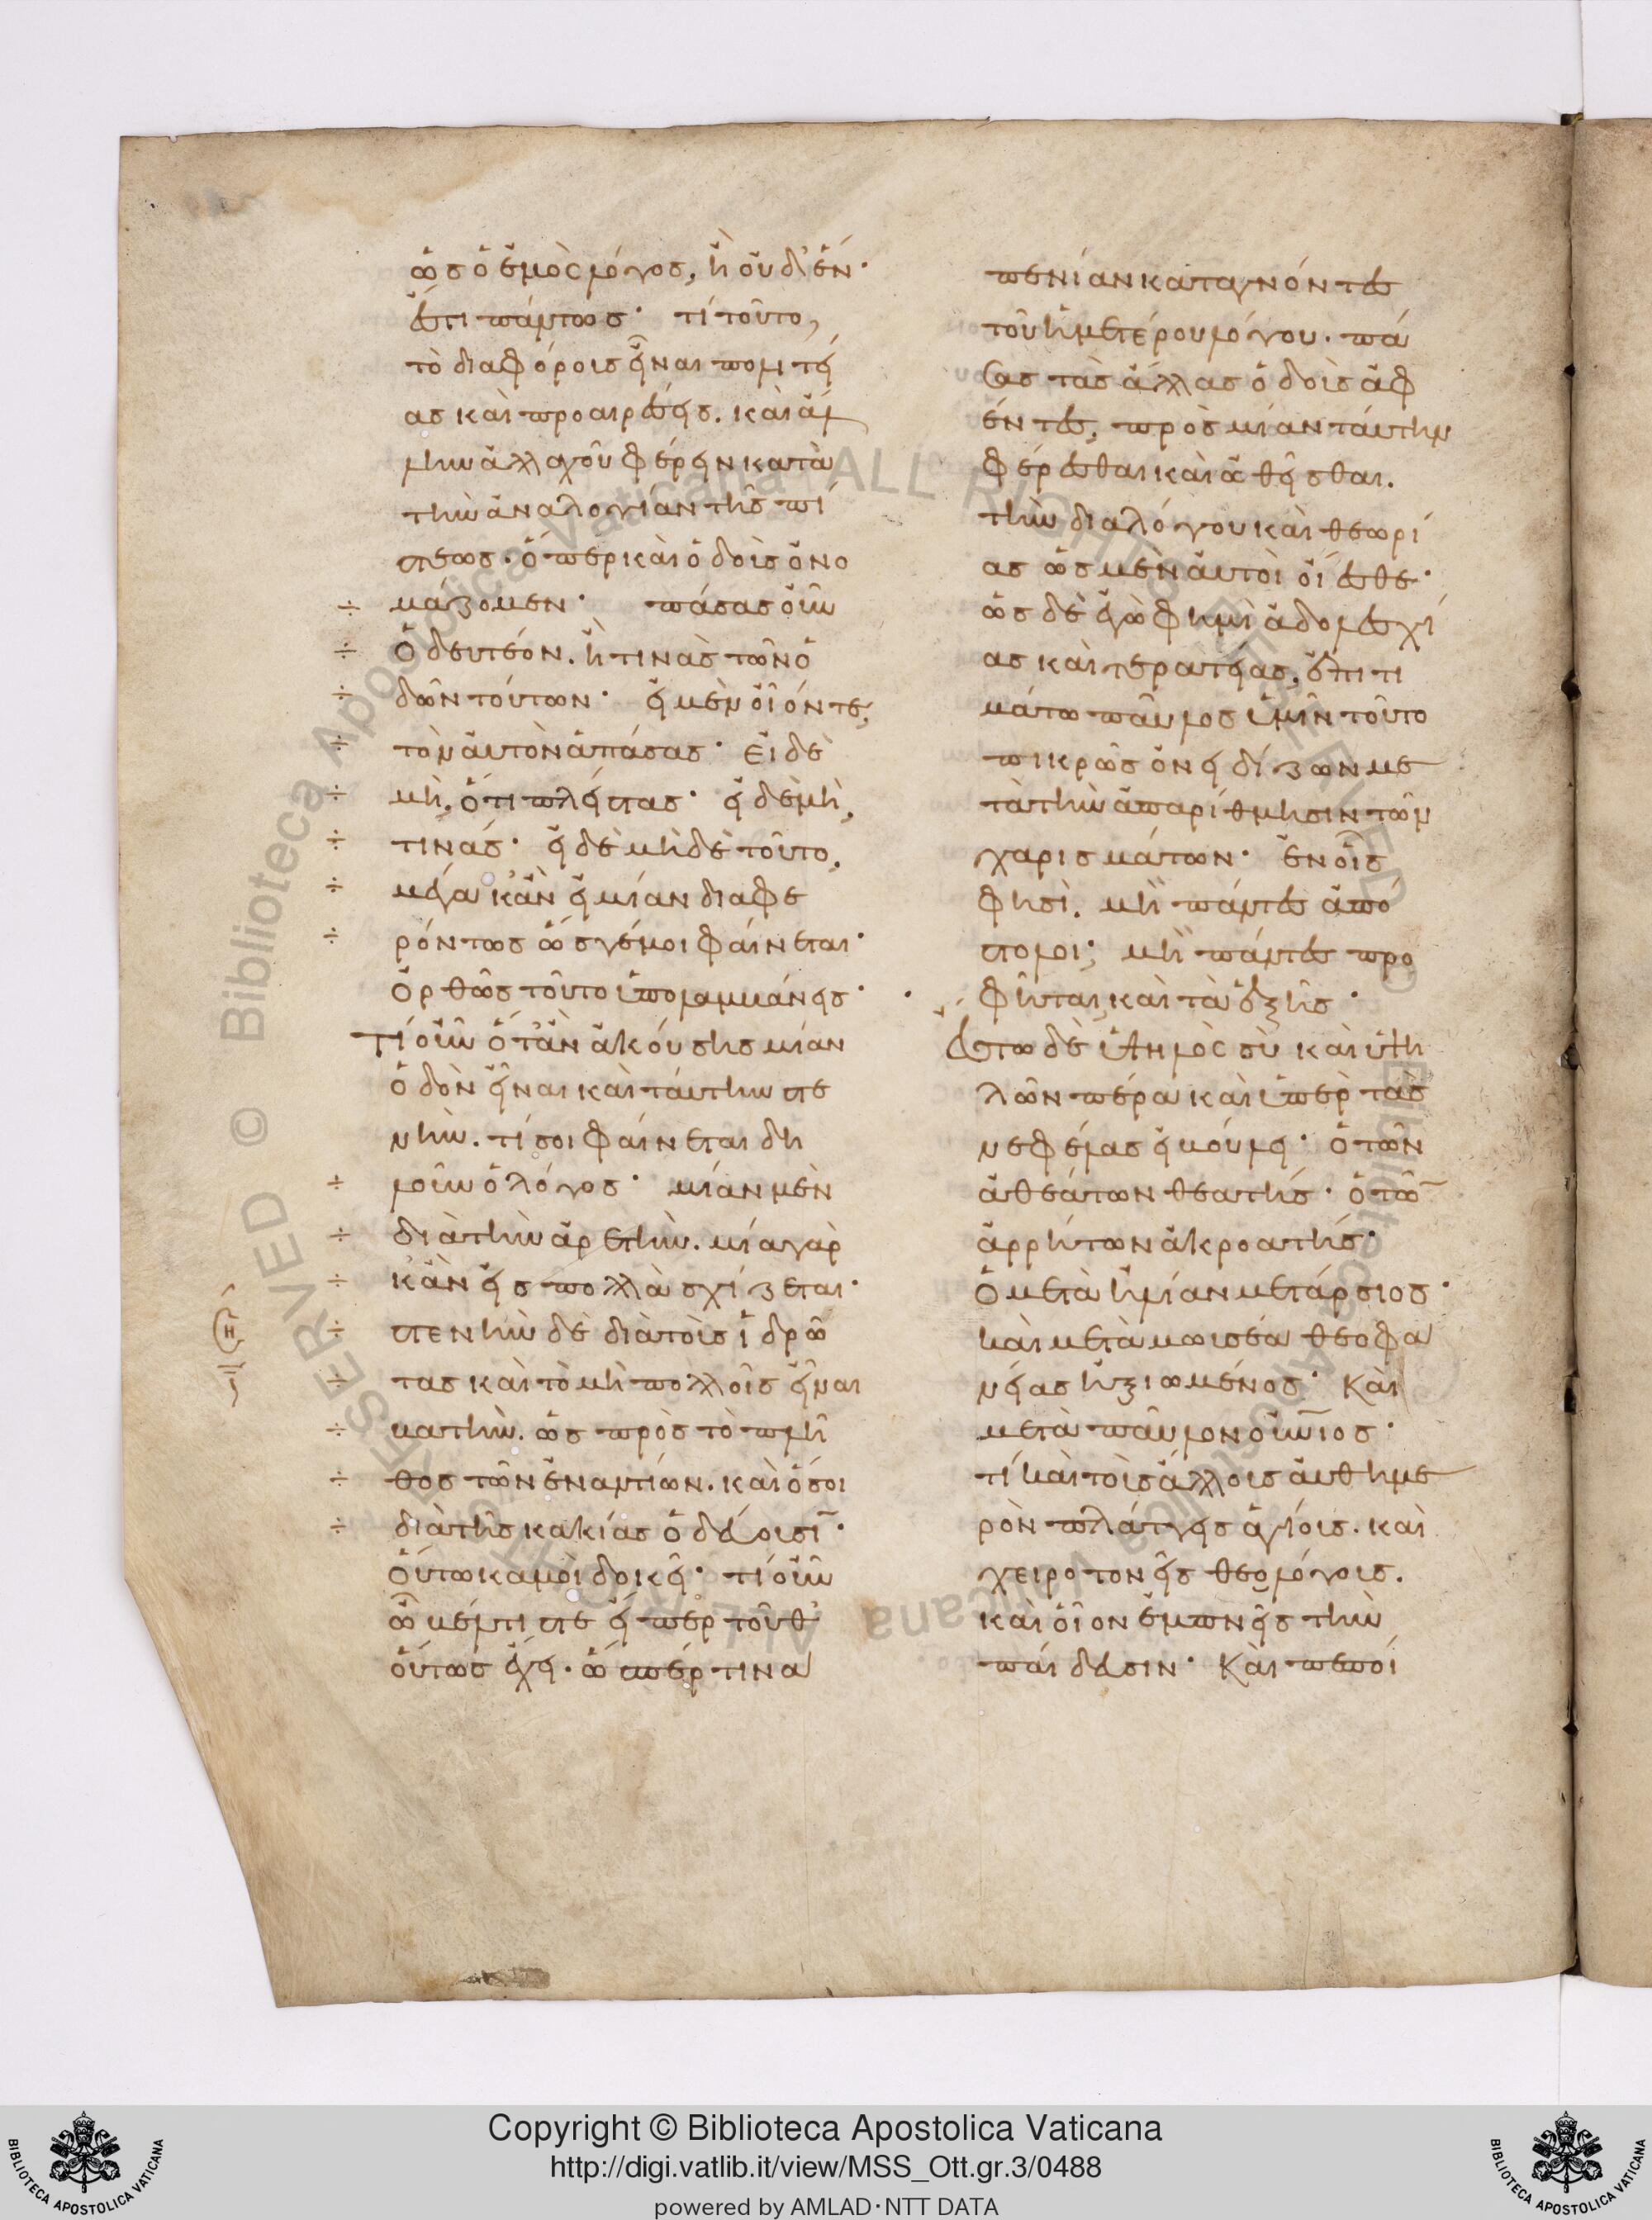 ὡς ὁ ἐμὸς λόγος, ἢ οὐδέν·
ἔστι πάντως· τί τοῦτο,
τὸ διαφόροις εἶναι πολιτεί
ας καὶ προαιρέσεις. καὶ ἄλ
λην ἀλλαχοῦ φέρειν κατὰ
τὴν ἀναλογίαν τῆς πί
στεως. ὅπερ καὶ ὁδοὺς ὀνο
÷ μάζομεν· πάσας οὖν
÷ ὁδευτέον. ἤ τινὰς τῶν ὁ
÷ δῶν τούτων· εἰ μὲν οἷόν τε,
÷ τὸν αὐτὸν ἁπάσας· εἰ δὲ
÷ μὴ, ὅτι πλείστας· εἰ δὲ μὴ,
÷ τινάς· εἰ δὲ μὴ δὲ τοῦτο,
÷ μέγα κἂν εἰ μίαν διαφε
÷ ρόντως ὥς γέ μοι φαίνεται·
ὀρθῶς τοῦτο ὑπολαμβάνεις·
Τί οὖν ὅτ' ἂν ἀκούσῃς μίαν
ὁδὸν εἶναι καὶ ταύτην στε
νὴν. τί σοι φαίνεται δη
÷ λοῦν ὁ λόγος· μίαν μὲν
÷ διὰ τὴν ἀρετὴν. μία γὰρ
÷ κἂν εἰς πολλὰ σχίζεται·
÷ στενὴν δὲ διὰ τοὺς ἱδρῶ
÷ τας καὶ τὸ μὴ πολλοῖς εἶναι
÷ βατὴν. ὡς πρὸς τὸ πλῆ
÷ θος τῶν ἐναντίων. καὶ ὅσοι
÷ διὰ τῆς κακίας ὁδεύουσι·
οὕτω κἀμοὶ δοκεῖ· τί οὖν
ὦ βέλτιστε εἴπερ τοῦθ'
οὕτως ἔχει. ὥσπέρ τινα
πενίαν καταγνόντες
τοῦ ἡμετέρου λόγου. πά
σας τὰς ἄλλας ὁδοὺς ἀφ
έντες, πρὸς μίαν ταύτην
φέρεσθαι καὶ ὠθεῖσθαι.
τὴν διὰ λόγου καὶ θεωρί
ας ὡς μὲν αὐτοὶ οἴεσθε·
ὡς δὲ ἐγώ φημι ἀδολεσχί
ας καὶ τερατείας, ἐπιτι
μάτω παῦλος ὑμῖν τοῦτο
πικρῶς ὀνειδίζων με
τὰ τὴν ἀπαρίθμησιν τῶν
χαρισμάτων· ἐν οἷς
φησὶ. μὴ πάντες ἀπό
στολοι; μὴ πάντες προ
φῆται, καὶ τὰ ἑξῆς·
Ἔστω δὲ ὑψηλὸς σὺ καὶ ὑψη
λῶν πέρα καὶ ὑπὲρ τὰς
νεφέλας εἰ βούλει· ὁ τῶν
ἀθεάτων θεατής· ὁ τῶν
ἀρρήτων ἀκροατής·
ὁ μετὰ ἠλίαν μετάρσιος·
καὶ μετὰ μωυσέα θεοφα
νείας ἠξιωμένος· Καὶ
μετὰ παῦλον οὐράνιος·
τί καὶ τοὺς ἄλλους αὐθημε
ρὸν πλάττεις ἁγίους. καὶ
χειροτονεῖς θεολόγους.
καὶ οἷον ἐμπνεῖς τὴν
παίδευσιν· Καὶ πεποί
Copyright © Biblioteca Apostolica Vaticana
http://digi.vatlib.it/view/MSS_Ott.gr.3/0488
powered by AMLAD·NTT DATA